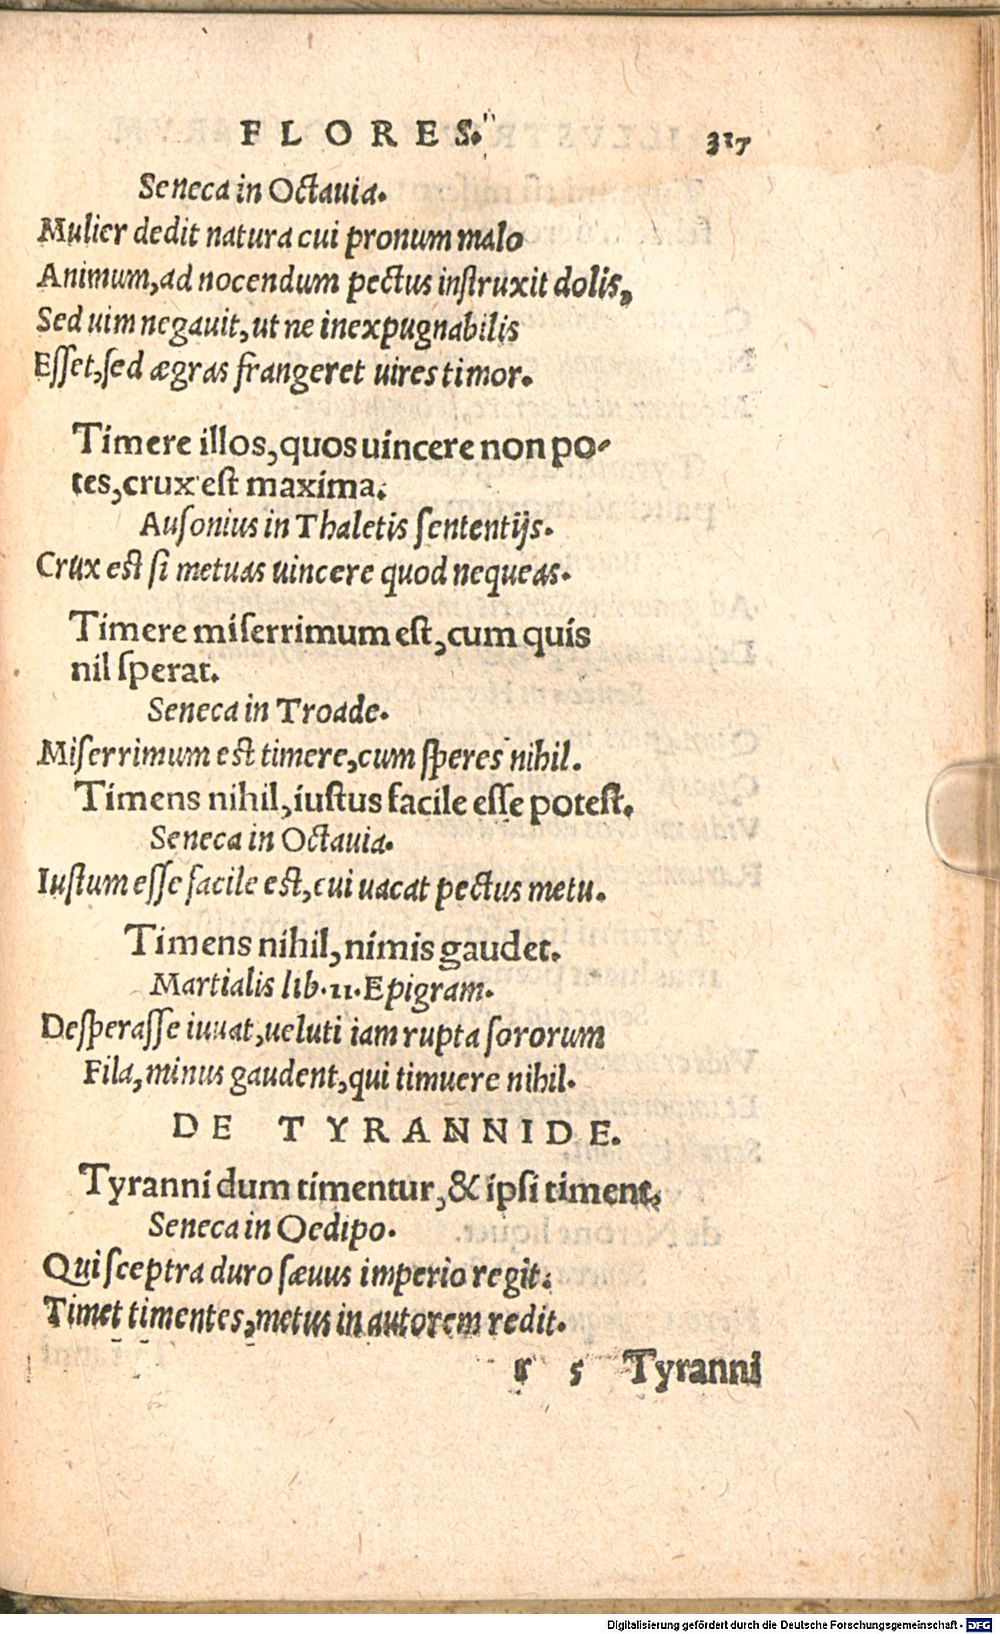 FLORES. 317
Seneca in Octauia.
Mulier dedit natura cui pronum malo
Animum, ad nocendum pectus instruxit dolis,
Sed uim negauit, ut ne inexpugnabilis
Esset, sed ægras frangeret uires timor.
Timere illos, quos uincere non po-
tes, crux est maxima.
Ausonius in Thaletis sententijs.
Crux est si metuas uincere quod nequeas.
Timere miserrimum est, cum quis
nil sperat.
Seneca in Troade.
Miserrimum est timere, cum speres nihil.
Timens nihil, iustus facile esse potest.
Seneca in Octauia.
Iustum esse facile est, cui uacat pectus metu.
Timens nihil, nimis gaudet.
Martialis lib. 11. Epigram.
Desperasse iuuat, ueluti iam rupta sororum
Fila, minus gaudent, qui timuere nihil.
DE TYRANNIDE.
Tyranni dum timentur, & ipsi timent.
Seneca in Oedipo.
Qui sceptra duro sæuus imperio regit:
Timet timentes, metus in autorem redit.
r 5 Tyranni
Digitalisierung gefördert durch die Deutsche Forschungsgemeinschaft - DFG